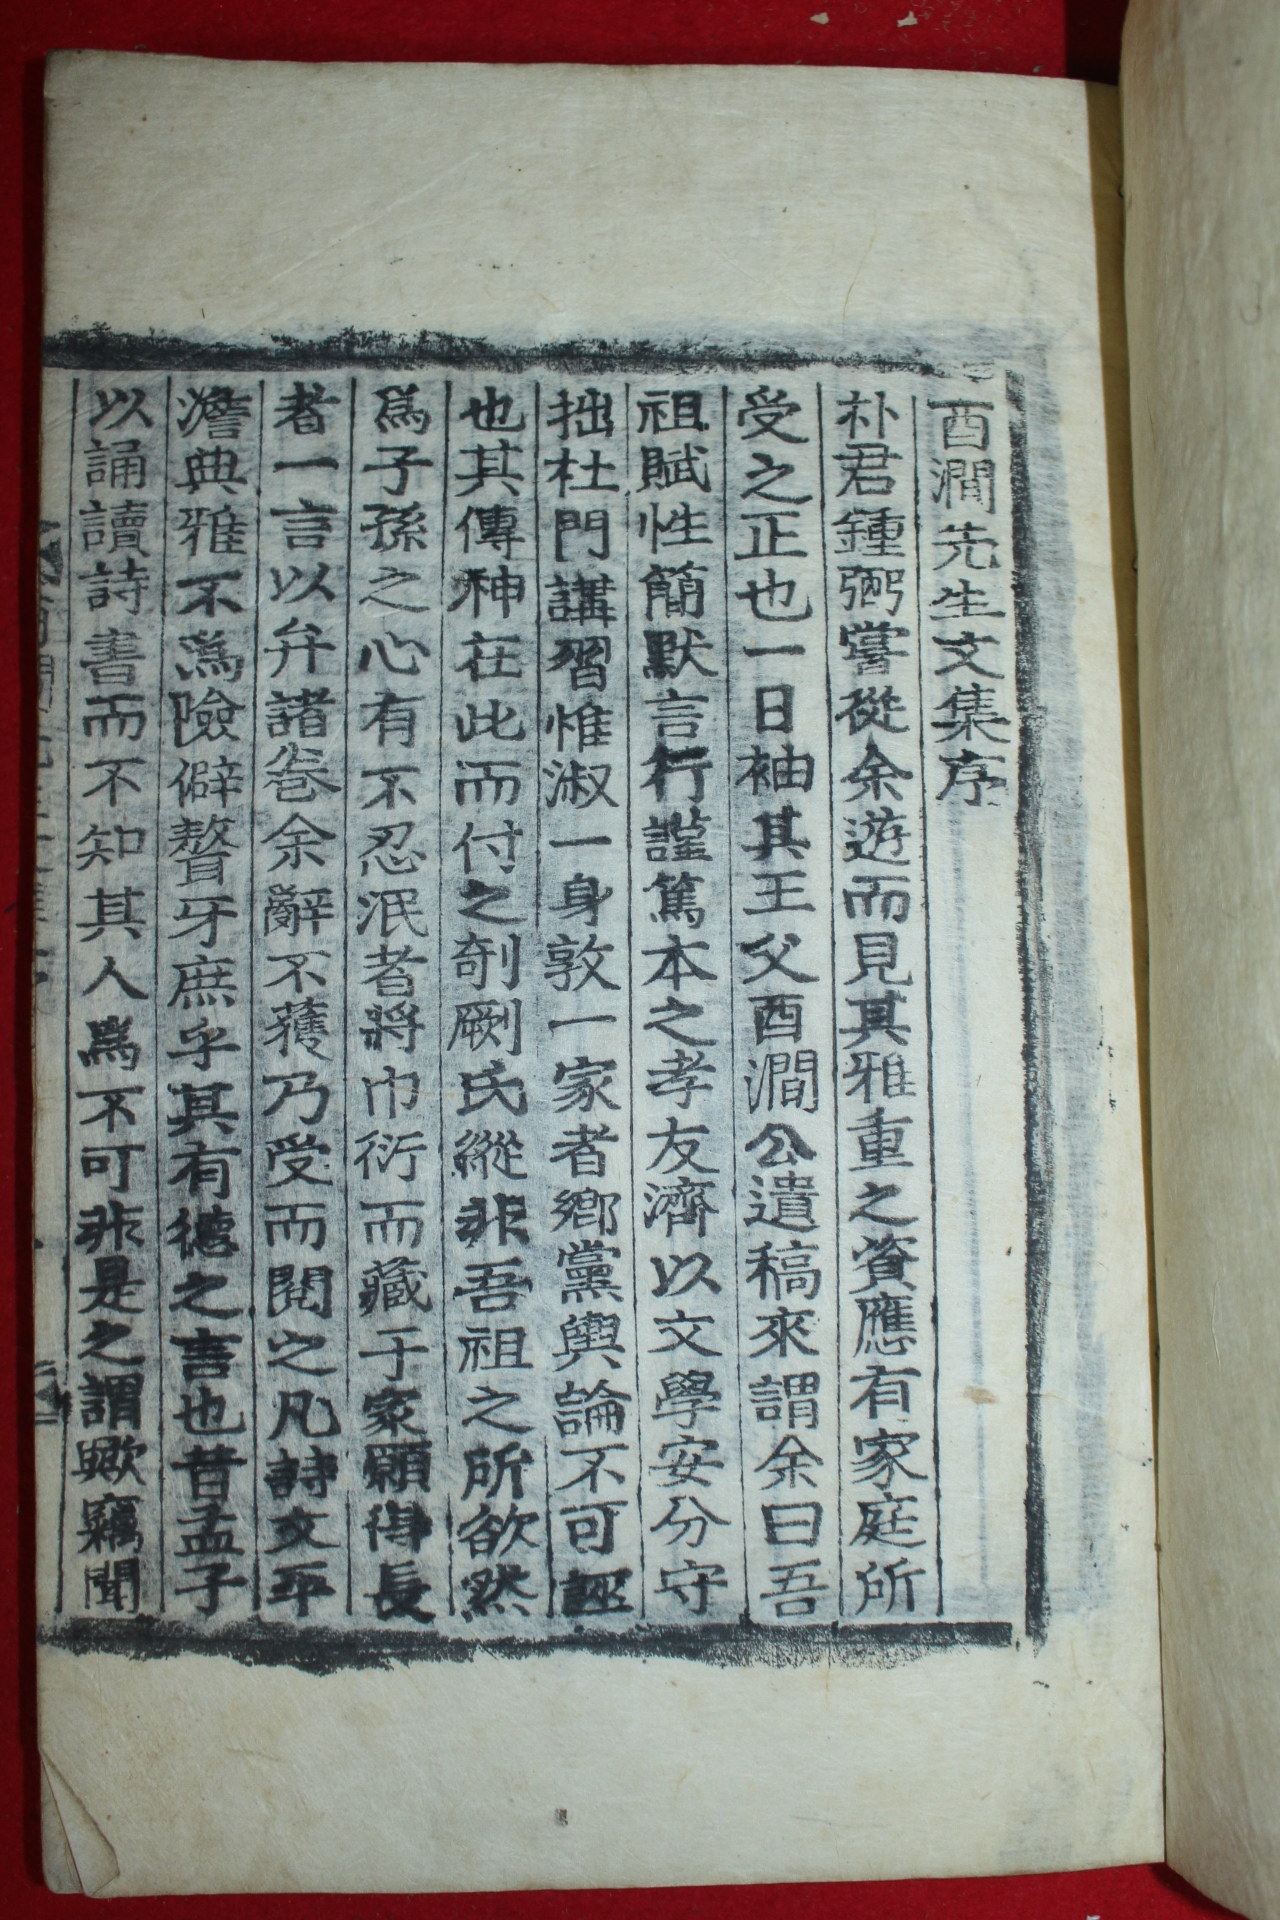 酉澗先生文集序
朴君鍾弼嘗從余遊而見其雅重之資應有家庭所
受之正也一日袖其王父酉澗公遺稿來謂余曰吾
祖賦性簡默言行謹篤本之孝友濟以文學安分守
拙杜門講習惟淑一身敦一家者鄕黨輿論不可誣
也其傳神在此而付之剞劂氏縱非吾祖之所欲然
爲子孫之心有不忍泯者將巾衍而藏于家願得長
者一言以弁諸卷余辭不獲乃受而閱之凡詩文平
澹典雅不爲險僻聱牙庶乎其有德之言也昔孟子
以誦讀詩書而不知其人爲不可非是之謂歟竊聞